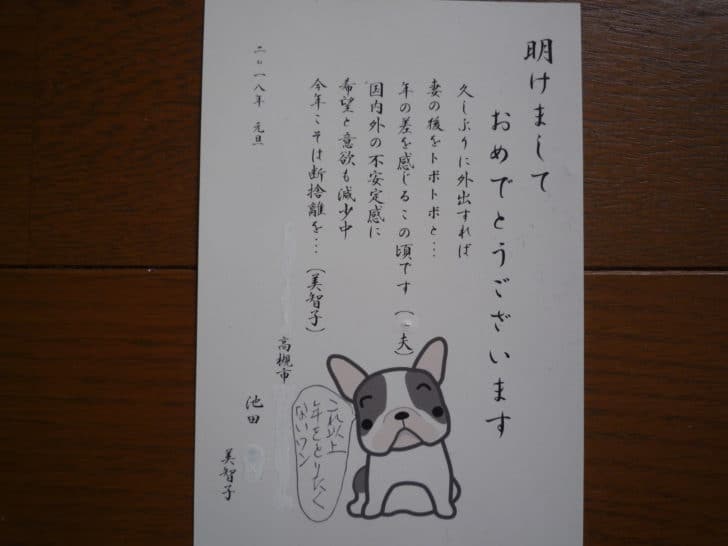 明けまして
おめでとうございます
久しぶりに外出すれば
妻の後をトボトボと…
年の差を感じるこの頃です（ 夫）
国内外の不安定感に
希望と意欲も減少中
今年こそは断捨離を…（美智子）
二〇一八年 元旦
高槻市
池田
美智子
これ以上
年をとりたく
ないワン